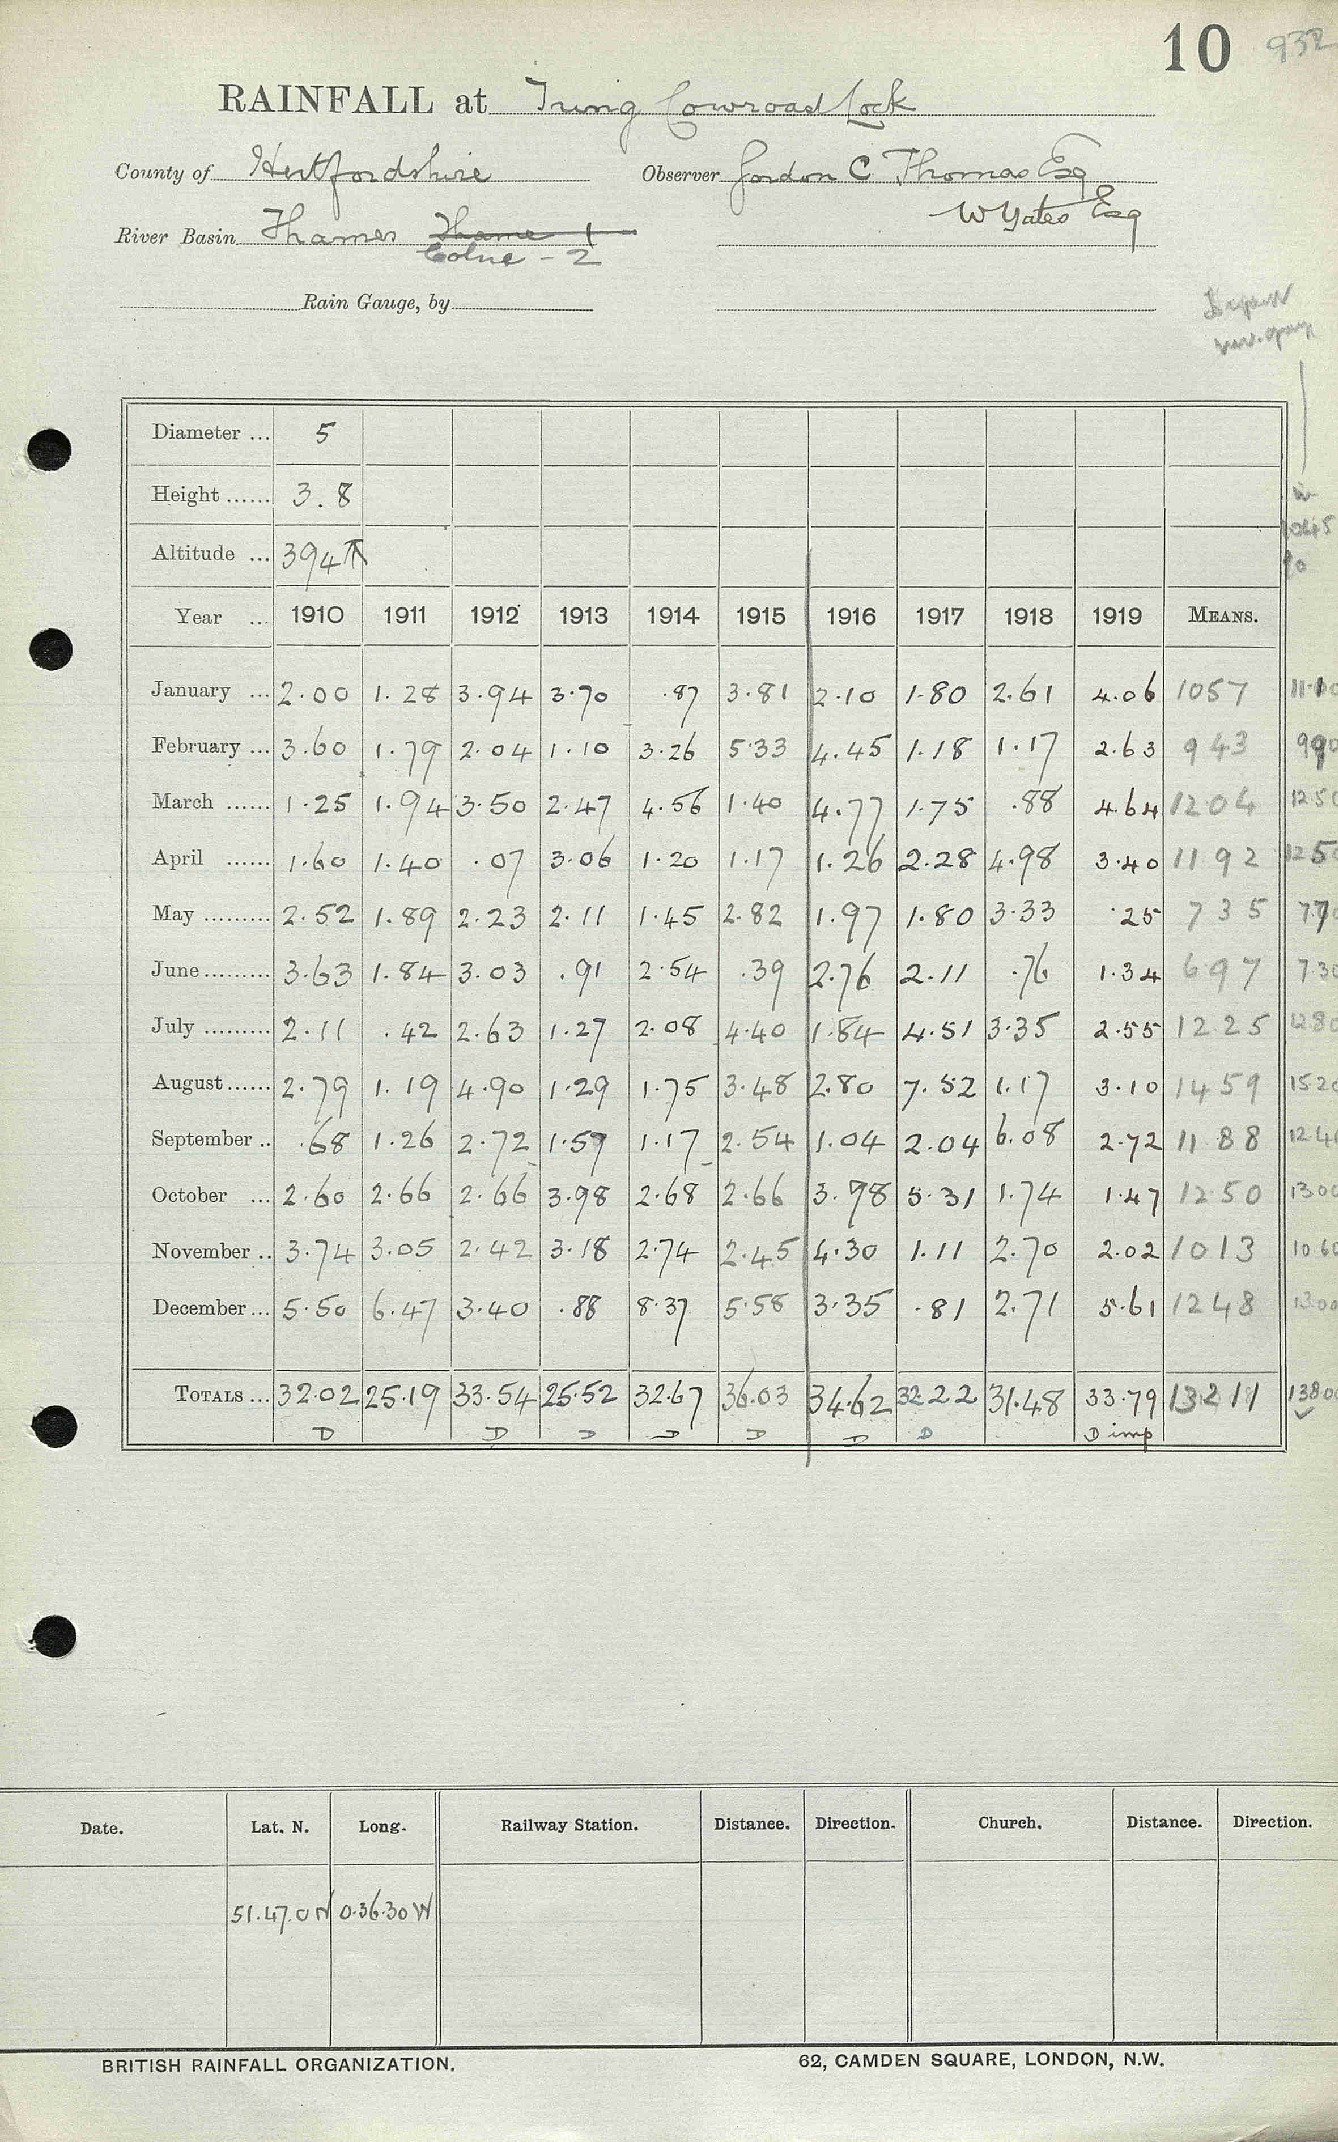 10 932
RAINFALL at Tring Cowroast Lock
County of Hertfordshire Observer Gordon C Thomas Esq
W Yates Esq
River Basin Thames Thame 1
Colne - 2
Rain Gauge, by
Diameter ... 5
Height ...... 3.8
Altitude ... 394 ↑
Year ... 1910 1911 1912 1913 1914 1915 1916 1917 1918 1919 MEANS.
January ... 2.00 1.28 3.94 3.70 .87 3.81 2.10 1.80 2.61 4.06 1057
February ... 3.60 1.79 2.04 1.10 3.26 5.33 4.45 1.18 1.17 2.63 943 990
March ...... 1.25 1.94 3.50 2.47 4.56 1.40 4.77 1.75 .88 4.64 1204 1250
April ...... 1.60 1.40 .07 3.06 1.20 1.17 1.26 2.28 4.98 3.40 1192 1250
May ......... 2.52 1.89 2.23 2.11 1.45 2.82 1.97 1.80 3.33 .25 735 770
June ......... 3.63 1.84 3.03 .91 2.54 .39 2.76 2.11 .76 1.34 697 730
July ......... 2.11 .42 2.63 1.27 2.08 4.40 1.84 4.51 3.35 2.55 1225 1280
August ...... 2.79 1.19 4.90 1.29 1.75 3.48 2.80 7.52 1.17 3.10 1459 1520
September .. .68 1.26 2.72 1.57 1.17 2.54 1.04 2.04 6.08 2.72 1188 1240
October ... 2.60 2.66 2.66 3.98 2.68 2.66 3.98 5.31 1.74 1.47 1250 1300
November .. 3.74 3.05 2.42 3.18 2.74 2.45 4.30 1.11 2.70 2.02 1013 1060
December ... 5.50 6.47 3.40 .88 8.37 5.58 3.35 .81 2.71 5.61 1248 1300
TOTALS ... 32.02 25.19 33.54 25.52 32.67 36.03 34.62 32.22 31.48 33.79 13211 13800
D D D D D D D D imp
Date. Lat. N. Long. Railway Station. Distance. Direction. Church. Distance. Direction.
51.47.0 N 0.36.30 W
BRITISH RAINFALL ORGANIZATION. 62, CAMDEN SQUARE, LONDON, N.W.